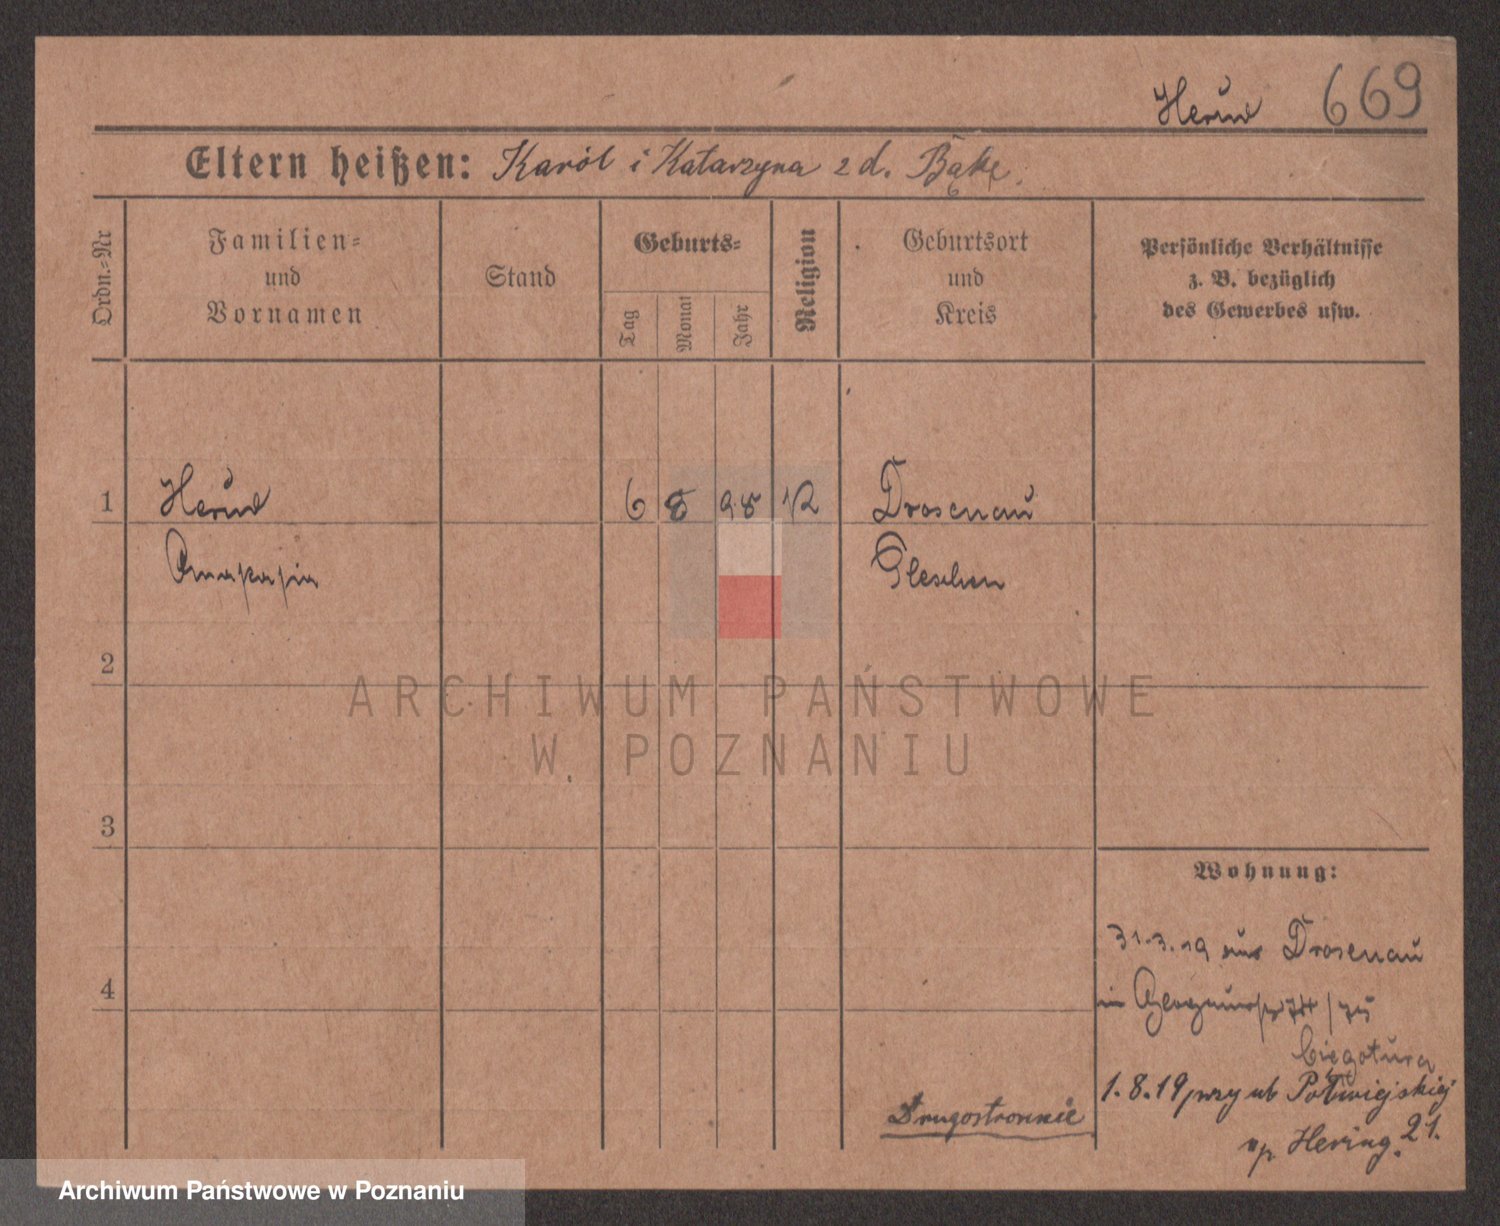 669
Eltern heißen: Karól i Katarzyna z d. Bąkę.
Ordn.=Nr
Familien=
und
Vornamen
Stand
Geburts=
Tag
Monat
Jahr
Religion
Geburtsort
und
Kreis
Persönliche Verhältnisse
z. B. bezüglich
des Gewerbes usw.
1
6 8 98
Drosenau
Pleschen
2
ARCHIWUM PAŃSTWOWE
W POZNANIU
3
Wohnung:
31.3.19 aus Drosenau
4
1.8.19 przy ul Półwiejskiej
21.
Hering
Drugostronnie
Archiwum Państwowe w Poznaniu